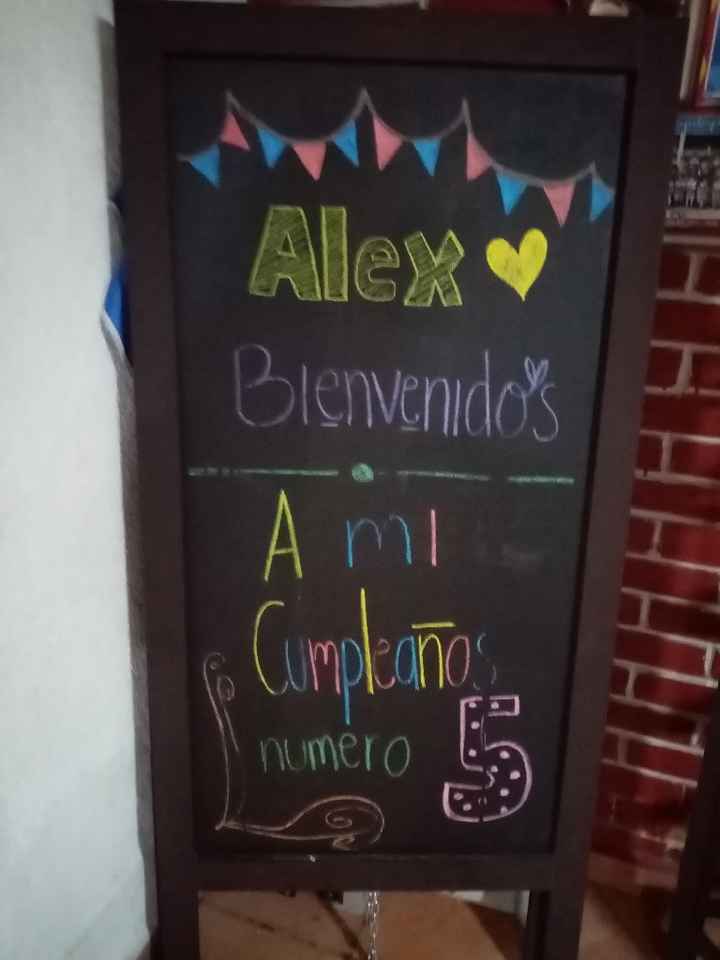 Alex
Bienvenidos
A mi
Cumpleaños
numero 5